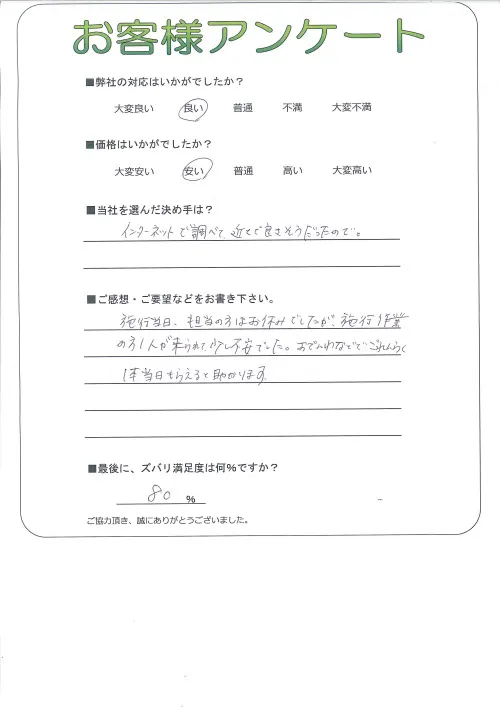 お客様アンケート
■弊社の対応はいかがでしたか？
大変良い 良い 普通 不満 大変不満
■価格はいかがでしたか？
大変安い 安い 普通 高い 大変高い
■当社を選んだ決め手は？
インターネットで調べて近くで良さそうだったので。
■ご感想・ご要望などをお書き下さい。
施行当日、担当の方はお休みでしたが、施行作業
の方1人が来られて少し不安でした。おでんわなどでごれんらく
1本当日もらえると助かります
■最後に、ズバリ満足度は何%ですか？
80 %
ご協力頂き、誠にありがとうございました。